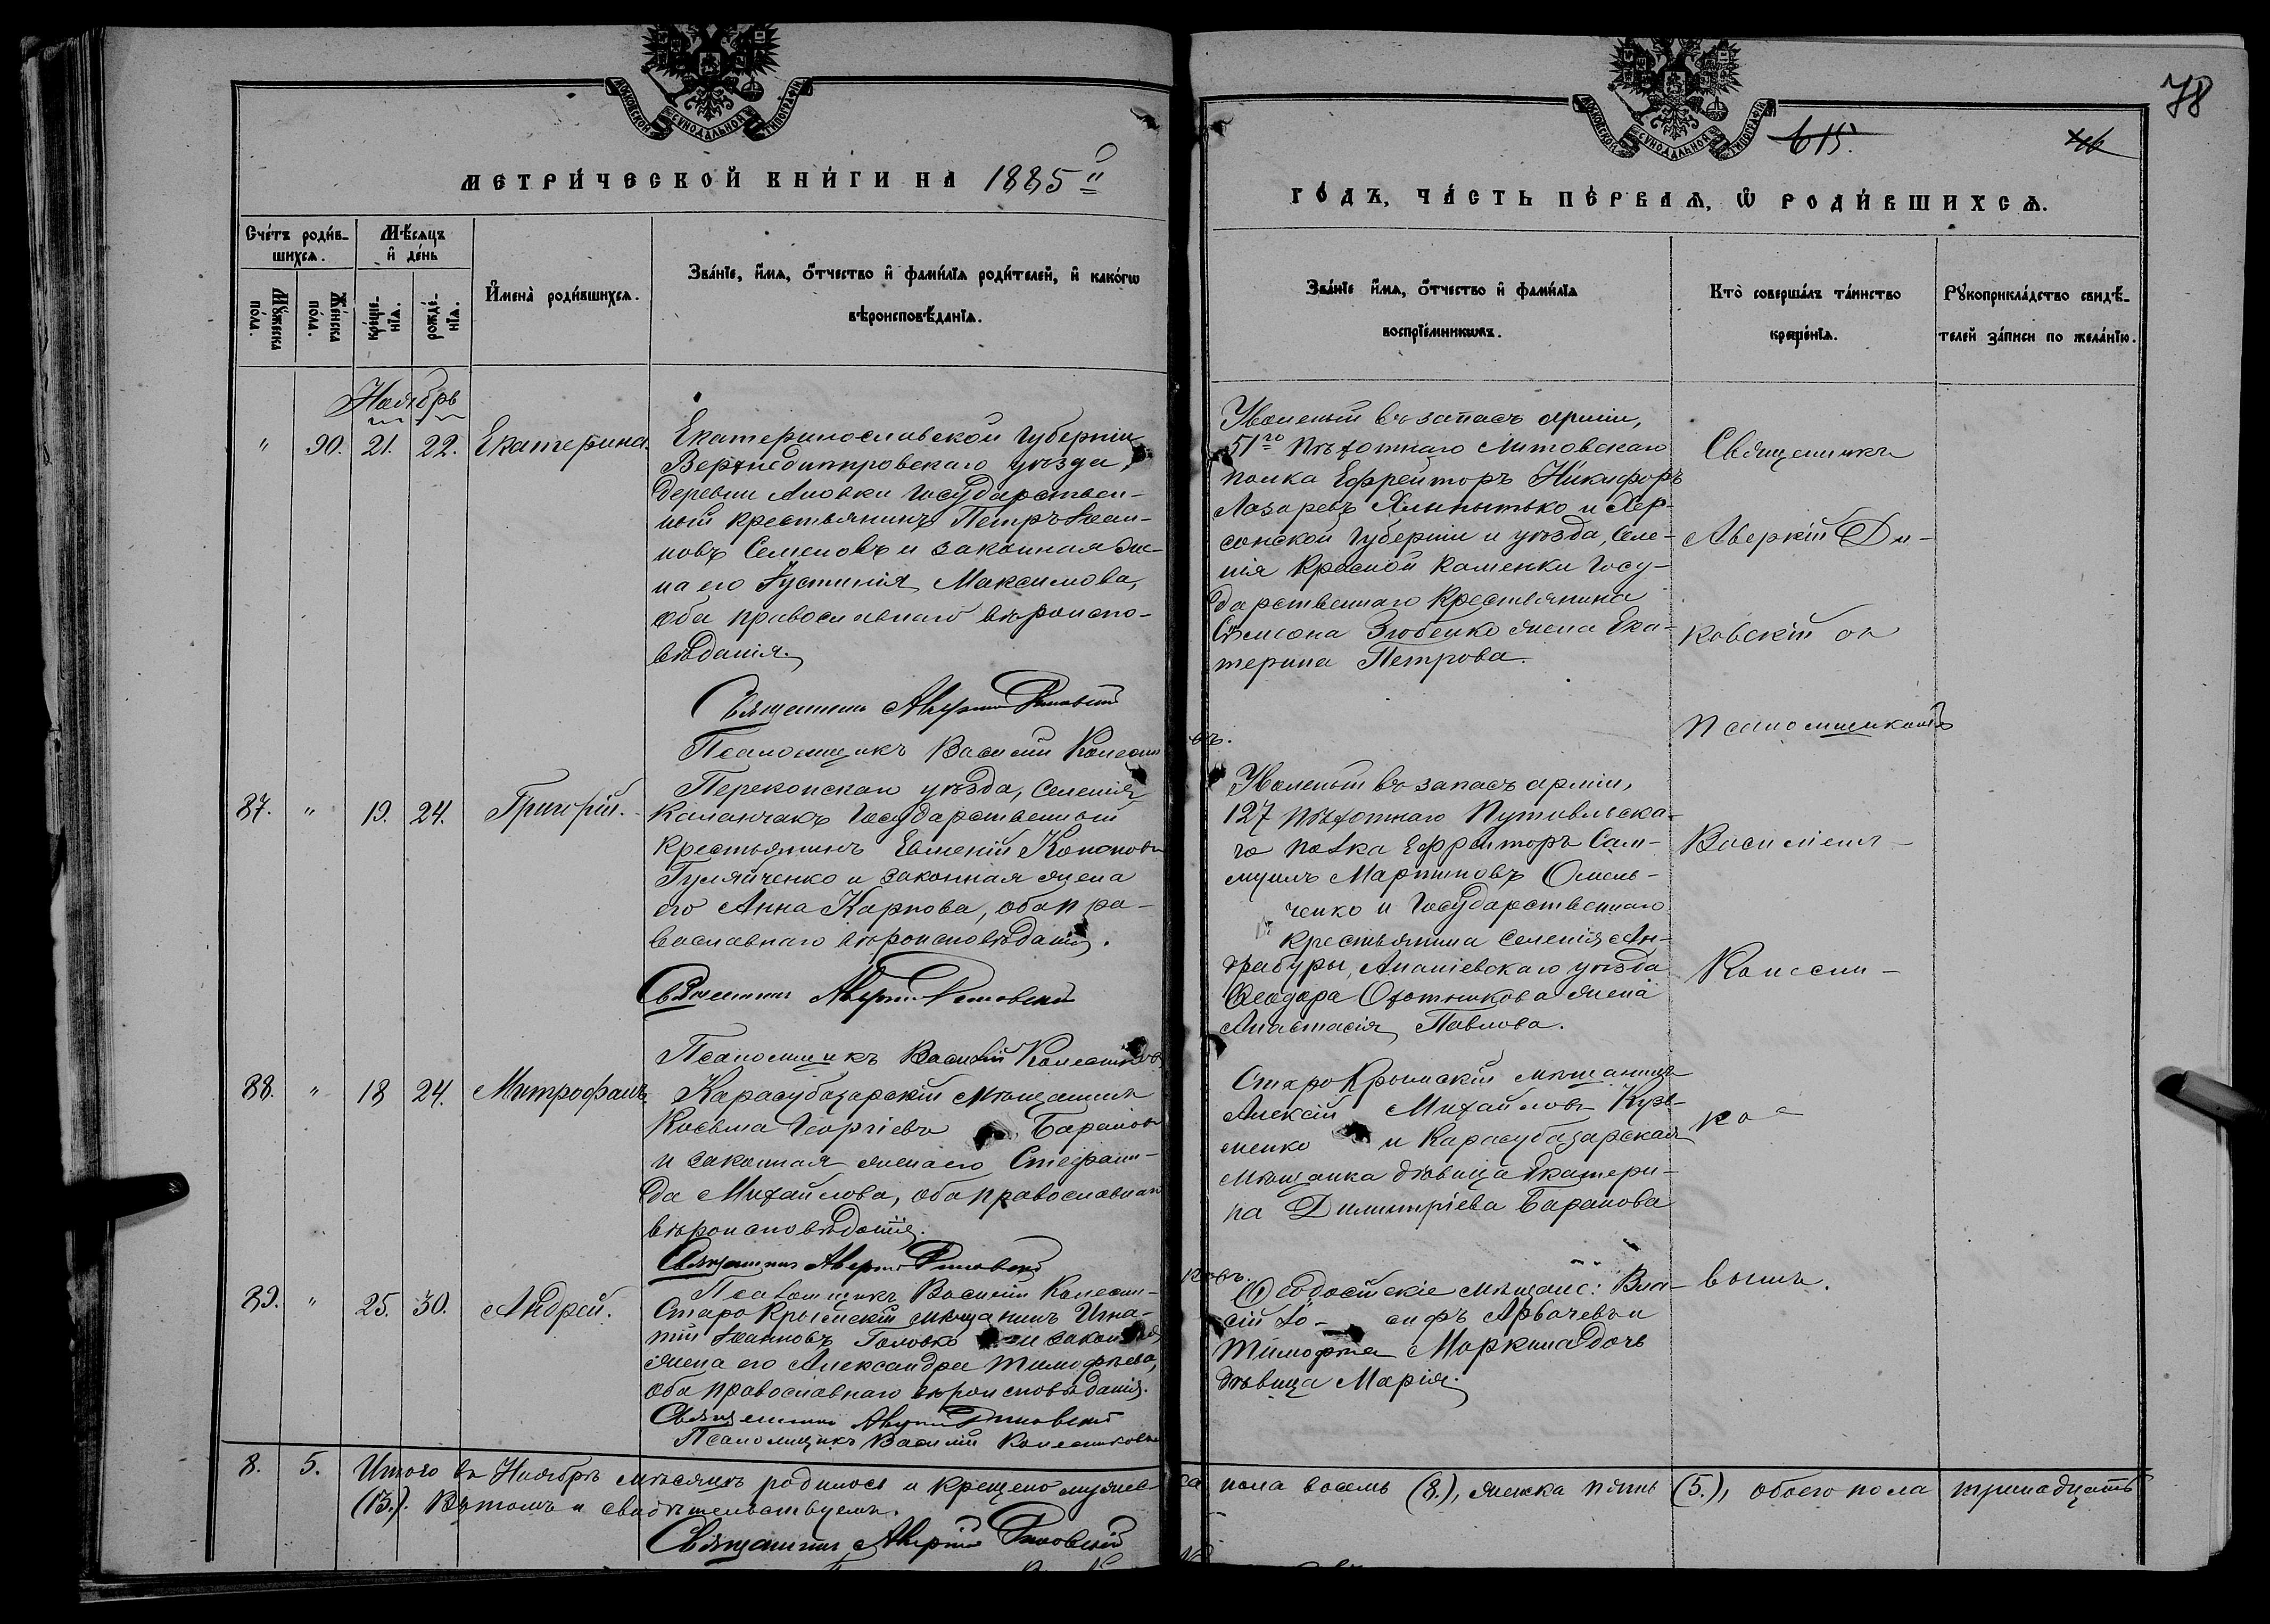 78
МОСКОВСКОЙ СѴНОДАЛЬНОЙ ТИПОГРАФІИ
МОСКОВСКОЙ СѴНОДАЛЬНОЙ ТИПОГРАФІИ
615.
МЕТРИ́ЧЕСКОЙ КНИ́ГИ НА 1885
ГО́ДЪ, ЧА́СТЬ ПЕ́РВАѦ, Ѿ РОДИ́ВШИХСѦ.
Сче́тъ роди́в-
шихсѧ.
Мѣ́сѧцъ
и҆ де́нь
Мꙋ́жеска
по́ла.
Же́нска
по́ла.
креще́-
нїѧ.
рожде́-
нїѧ.
И҆мена̀ роди́вшихсѧ.
Зва́нїе, и҆́мѧ, ѻ҆́тчество и҆ фами́лїѧ роди́телей, и҆ како́гѡ
вѣроисповѣ́данїѧ.
Зва́нїе и҆́мѧ, ѻ҆́тчество и҆ фами́лїѧ
воспрїе́мникѡвъ.
Кто̀ соверша́лъ та́инство
креще́нїѧ.
Рꙋкоприкла́дство свидѣ́-
телей за́писи по жела́нїю.
Ноябрь
" 90. 21. 22. Екатерина.
Екатеринославской Губерніи
Верхнеднепровскаго уѣзда,
деревни Аловки Государствен-
ный крестьянинъ Петръ Іоан-
новъ Семеновъ и законная же-
на его Іустинія Максимова,
оба православнаго вѣроиспо-
вѣданія.
Священникъ Аверкій
Псаломщикъ Василій Колесни
ковъ.
Уволеный въ запасъ арміи,
51го Пѣхотнаго Литовскаго
полка Ефрейторъ Никифоръ
Лазаревъ и Хер-
сонской Губерніи и уѣзда, Селе-
нія Красной Каменки Госу-
дарственнаго Крестьянина
Сѵмеона Злобенко жена Ека-
терина Петрова.
Священникъ
Аверкій Ди-
ковскій съ
псаломщикомъ
Василіемъ
Колесни-
ко-
вымъ.
87. " 19. 24. Григорій.
Перекопскаго уѣзда, Селенія
Каланчакъ Государственный
крестьянинъ Евменій Кононовъ
Гуляйченко и законная жена
его Анна Карпова, оба пра-
вославнаго вѣроисповѣданія.
Священникъ Аверкій
Псаломщикъ Василій Колесников
Уволеный въ запасъ арміи,
127 Пѣхотнаго Путивльска-
го полка Ефрейторъ Сам-
муилъ Мартиновъ Омель-
ченко и Государственнаго
крестьянина Селенія Ан-
грабуры, Ананіевскаго уѣзда
Ѳеодора Охотникова жена
Анастасія Павлова.
88. " 18 24. Митрофанъ.
Карасубазарскій мѣщанинъ
Косьма Георгіевъ Барановъ
и законная жена его Стефани-
да Михайлова, оба православнаго
вѣроисповѣданія.
Священникъ Аверкій
Псаломщикъ Василій Колесни-
ковъ.
Старо Крымскій мѣщанинъ
Алексій Михайловъ Кузь-
менко и Карасубазарская
мѣщанка дѣвица Екатери-
на Димитріева Баранова
89. " 25. 30. Андрей.
Старо Крымскій мѣщанинъ Игна-
тій Іоанновъ Головко и законная
жена его Александра Тимофѣева,
оба православнаго вѣроисповѣданія.
Священникъ Аверкій
Псаломщикъ Василій Колесниковъ
Ѳеодосійскіе мѣщане: Вла-
сій Іо- сифъ и
Тимофѣя Маркина дочь
дѣвица Марія.
8. 5. Итого въ Ноябрѣ мѣсяцѣ родилось и крещено мужес-
ка пола восемь (8.), женска пять (5.), обоего пола тринадцать
(13.). Въ томъ и свидѣтельствуемъ.
Священникъ Аверкій